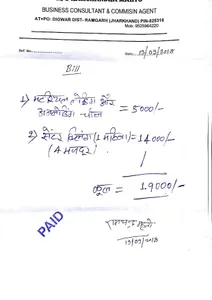 BUSINESS CONSULTANT & COMMISIN AGENT
AT+PO: DIGWAR DIST- RAMGARH (JHARKHAND) PIN-825316
Mob: 9525964220
13/09/2018
Bill
1) मटेरियल लोडिंग और
अनलोडिंग चार्ज = 5000/-
2) सेंटर (1 महिना) = 14000/-
(4 मजदूर)
कुल = 19000/-
PAID
13/09/2018